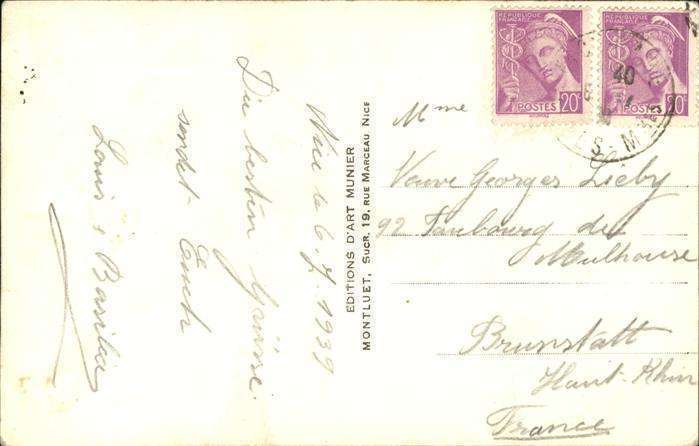 Nice le 6 7. 1939
Die besten Grüsse
sendet Euch
Louis &
EDITIONS D'ART MUNIER
MONTLUET, Sucr. 19, RUE MARCEAU NICE
REPUBLIQUE FRANÇAISE
POSTES 20c
REPUBLIQUE FRANÇAISE
POSTES 20c
40
Mme
Veuve Georges
92 Faubourg de
Mulhouse
Brunstatt
Haut-Rhin
France